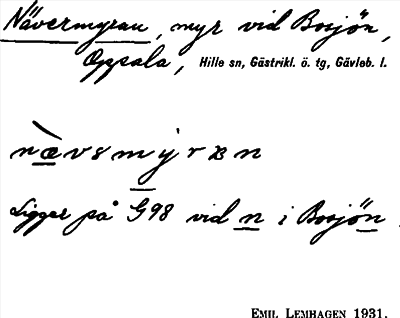 Nävermyran, myr vid Bosjön,
Oppsala, Hille sn, Gästrikl. ö. tg, Gävleb. l.
næ̀vsmýrʙn
Ligger på G98 vid n i Bosjön.
EMIL LEMHAGEN 1931.